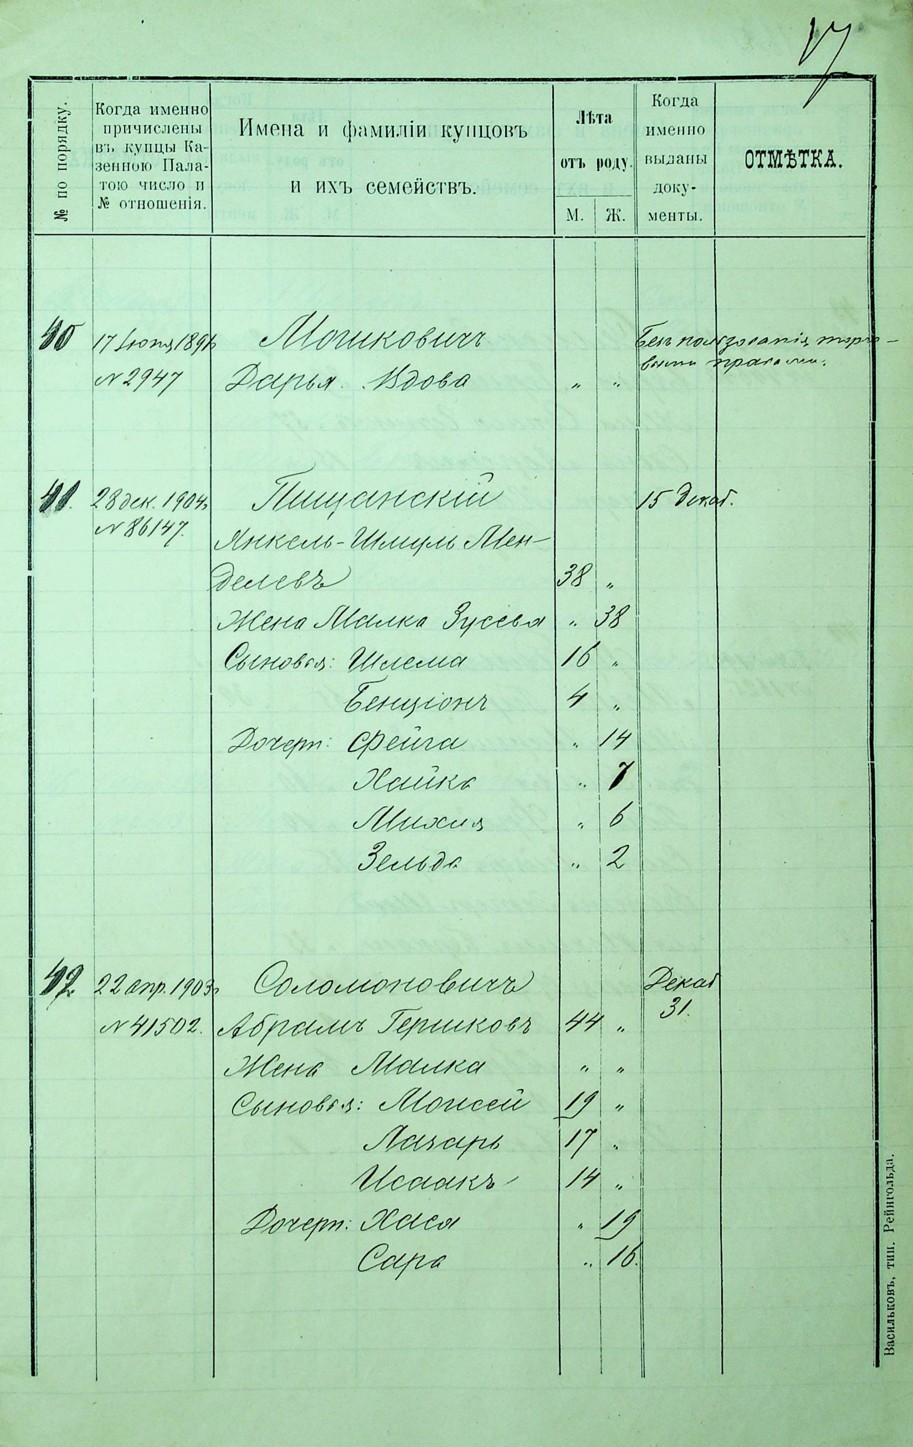 17
№ по порядку.
Когда именно
причислены
въ купцы Ка-
зенною Пала-
тою число и
№ отношенія.
Имена и фамиліи купцовъ
и ихъ семействъ.
Лѣта
отъ роду.
М. Ж.
Когда
именно
выданы
доку-
менты.
ОТМѢТКА.
40 Мошковичъ Безъ пользованія торго-
17 Іюня 1891 выми правами.
№ 2947 Дарья. Вдова " "
41. 28 дек. 1904 Пищанскій 15 Декаб.
№ 86147. Янкель-Шмуль Мен-
делевъ 38 "
Жена Малка Зусева " 38
Сыновья: Шлема 16 "
Бенціонъ 4 "
Дочери: Фейга " 14
Хайка " 7
Михля " 6
Зельда " 2
42 22 апр. 1903 Соломоновичъ Декаб
31.
№ 41502. Абрамъ Гершковъ 44 "
Жена Малка " "
Сыновья: Моисей 19 "
Лазарь 17 "
Исаакъ 14 "
Дочери: Хася " 19
Сара " 16.
Васильковъ, тип. Рейнгольда.